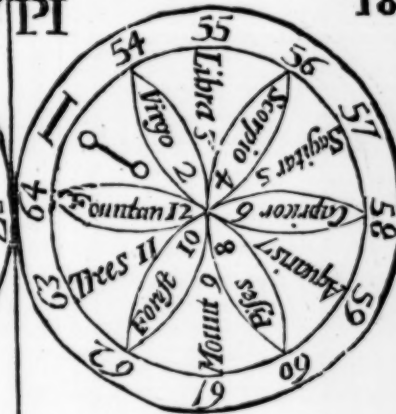 PI
I
54
55
56
57
58
59
60
61
62
63
64
Virgo 2
Libra 3
Scorpio 4
Sagitar 5
Capricor 6
Aquaris 7
Piſes 8
Mount 9
Foriſt 10
Trees 11
12